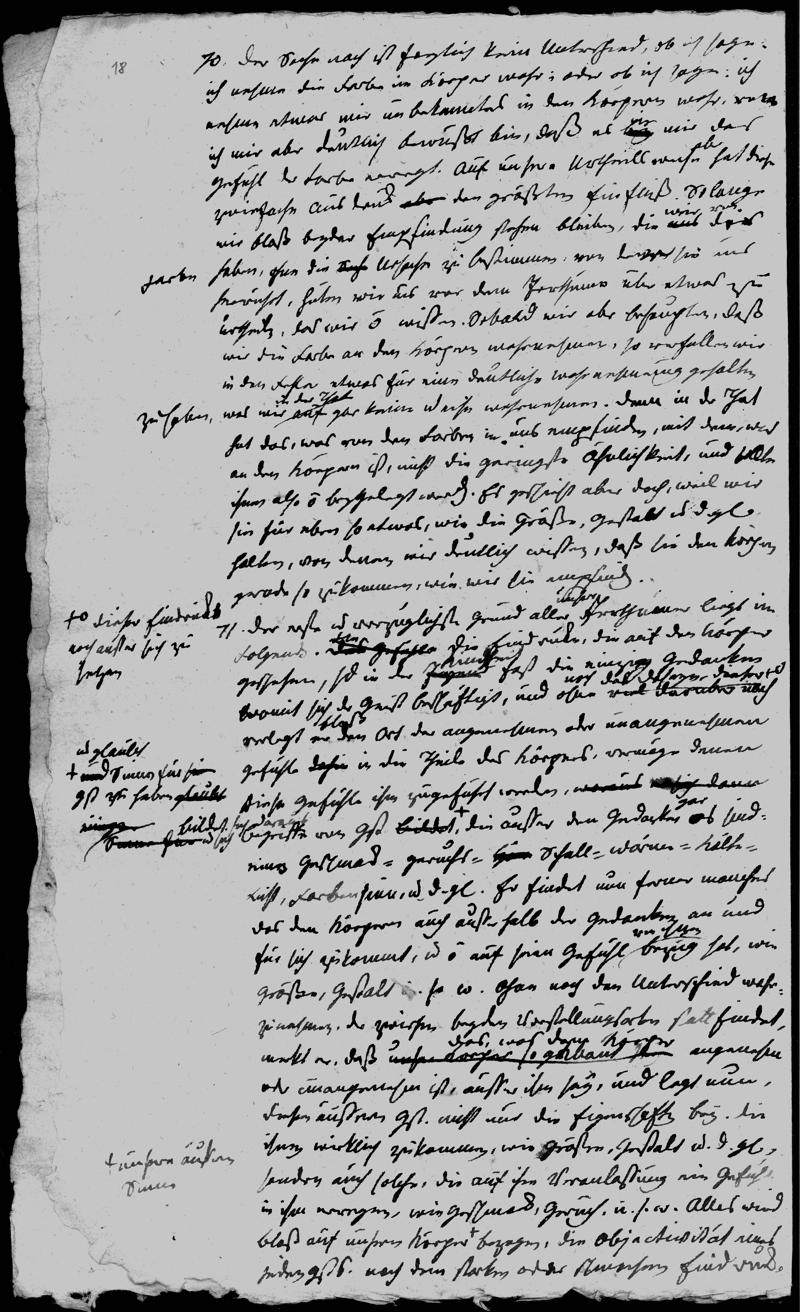 18
70. Der Sache nach ist folglich kein Unterschied, ob ich sage:
ich nehme die Farbe im Körper wahr; oder ob ich sage: ich
nehme etwas mir unbekanntes in den Körpern wahr, wovon
ich mir aber deutlich bewußt bin, daß es mir das
Gefühl der Farbe erregt. Auf unsere Urtheilsweise aber hat diese
zweifache Ausdruck den größten Einfluß. Solange
wir bloß bey der Empfindung stehen bleiben, die wir von
Farben haben, ohne die Ursache zu bestimmen, von der sie uns
herrührt, hüten wir uns vor dem Irrthume über etwas zu
urtheilen, das wir õ wissen. Sobald wir aber behaupten, daß
wir die Farbe an den Körpern wahrnehmen, so verfallen wir
in den Fehler etwas für eine deutliche Wahrnehmung gehalten
zu haben, was wir in der That auf gar keine Weise wahrnehmen. Denn in der That
hat das, was von den Farben in uns empfinden, mit dem, was
an den Körpern ist, nicht die geringste Ähnlichkeit, und sollte
ihnen also õ beygelegt werd. Es geschieht aber doch, weil wir
sie für eben so etwas, wie die Größe, Gestalt u d. gl.
halten, von denen wir deutlich wissen, daß sie den Körpern
gerade so zukommen, wie wir sie empfind.
71. Der erste u vorzüglichste Grund aller unserer Irrthümer liegt im
Folgenden. Die Eindrücke, die auf den Körper
geschehen, sd in der Kindheit fast die einzigen Gedanken
womit sich der Geist beschäftigt, und ohne noch
+o diesen Eindruck
noch ausser sich zu
setzen
verlegt er bloß den Ort der angenehmen oder unangenehmen
Gefühle in die Theile des Körpers, vermöge denen
diese Gefühle ihm zugeführt werden,
u glaubt
+ Sinn für sie
Gst zu haben
bildet
Begriffe von Gst +, die ausser den Gedanken gar õ sind:
eines Geschmack- Geruchs- Schall- Wärme- Kälte-
Licht, Farbensinn, u. d. gl. Er findet nun ferner manches
das den Körpern auch ausserhalb der Gedanken an und
für sich zukommt, u õ auf sein Gefühl bezug hat, wie
Größe, Gestalt u. s. w. Ohne noch den Unterschied wahr-
zunehmen, der zwischen beyden Vorstellungsarten statt findet,
merkt er, daß das, was dem Körper angenehm
oder unangenehm ist, ausser ihm sey, und legt nun,
diesen äussern Gst. nicht nur die Eigenschaften bey, die
ihnen wirklich zukommen, wie Größe, Gestalt u. d. gl.,
sondern auch solche, die auf ihre Veranlassung ein Gefühl
in ihm erregen, wie Geschmack, Geruch, u. s. w. Alles wird
+ unsern äussern
Sinne
bloß auf unsern Körper + bezogen, die Objectivität eines
jeden Gst. nach dem starken oder schwachen Eindruck.